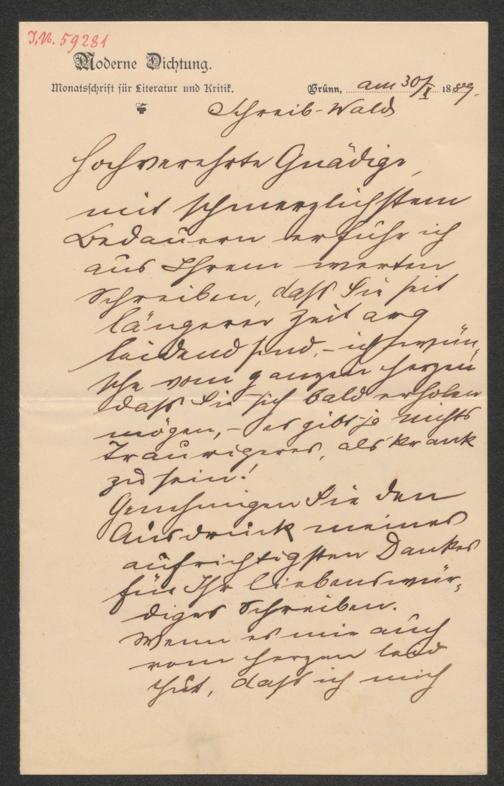 I.N. 59281
Moderne Dichtung.
Monatsschrift für Literatur und Kritik.
Brünn, am 30/I 1889.
Schreib-Wald
Hochverehrte Gnädige,
mit schmerzlichstem
Bedauern erfuhr ich
aus Ihrem werten
Schreiben, daß Sie seit
längerer Zeit arg
leidend sind, – ich wün-
sche vom ganzen Herzen
daß Sie sich bald erholen
mögen, – es gibt ja nichts
Traurigeres, als krank
zu sein!
Genehmigen Sie den
Ausdruck meines
aufrichtigsten Dankes
für Ihr liebenswür-
diges Schreiben.
Wenn es mir auch
vom Herzen leid
thut, daß ich mich